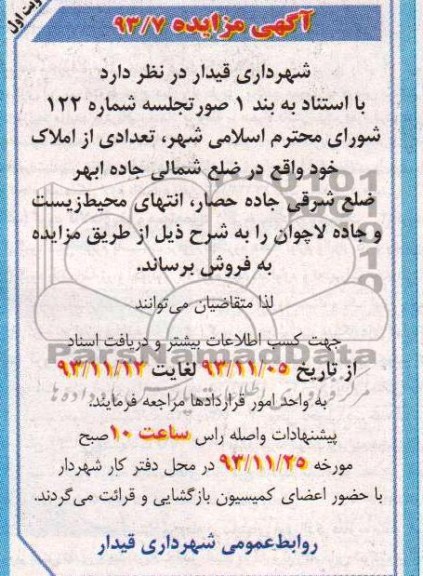 نوبت اول
آگهی مزایده ۹۳/۷
شهرداری قیدار در نظر دارد
با استناد به بند ۱ صورتجلسه شماره ۱۲۲
شورای محترم اسلامی شهر، تعدادی از املاک
خود واقع در ضلع شمالی جاده ابهر
ضلع شرقی جاده حصار، انتهای محیط‌زیست
و جاده لاچوان را به شرح ذیل از طریق مزایده
به فروش برساند.
لذا متقاضیان می‌توانند
جهت کسب اطلاعات بیشتر و دریافت اسناد
ParsNamadData
از تاریخ ۹۳/۱۱/۰۵ لغایت ۹۳/۱۱/۱۲
به واحد امور قراردادها مراجعه فرمایند.
پیشنهادات واصله راس ساعت ۱۰ صبح
مورخه ۹۳/۱۱/۲۵ در محل دفتر کار شهردار
با حضور اعضای کمیسیون بازگشایی و قرائت می‌گردند.
روابط‌عمومی شهرداری قیدار